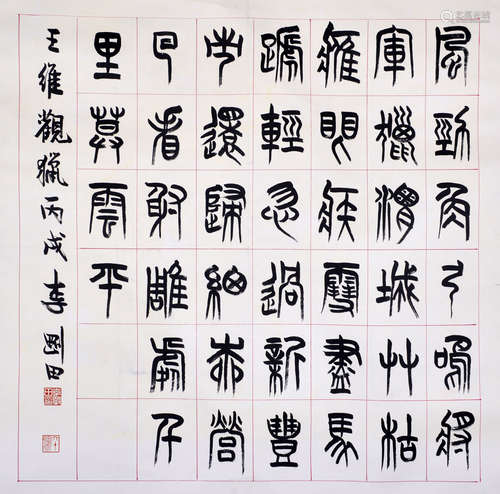 風勁角弓鳴將
軍獵渭城艸枯
鷹眼疾雪盡馬
蹏輕忽過新豐
市還歸細柳營
回看射雕處千
里莫雲平
王維觀獵丙戌李剛田